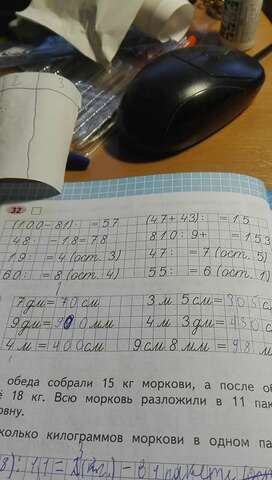 32
(100-81): = 57
(47+43): = 15
48 - 18 = 78
810: 9+ = 153
19: = 4 (ост. 3)
47: = 7 (ост. 5)
60: = 8 (ост. 4)
55: = 6 (ост. 1)
7 дм = 70 см
3 м 5 см = 305 см
9 дм = 900 мм
4 м 3 дм = 430 см
4 м = 400 см
9 см 8 мм = 98 м
обеда собрали 15 кг моркови, а после об
ё 18 кг. Всю морковь разложили в 11 пак
овну.
колько килограммов моркови в одном па
8): 11 =